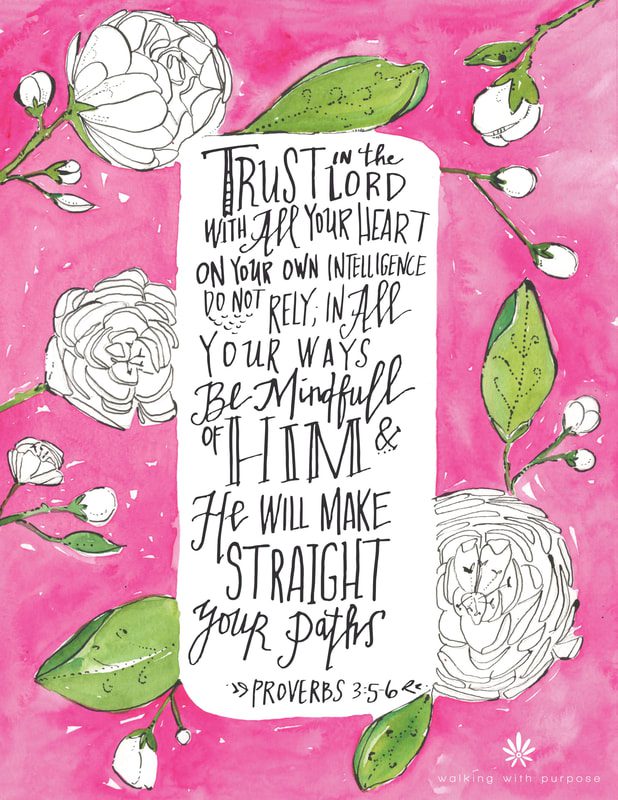 TRUST in the LORD
WITH All YOUR HEART
ON YOUR OWN INTELLIGENCE
DO NOT RELY; IN All
YOUR WAYS
Be Mindfull
OF HIM &
He WILL MAKE
STRAIGHT
your paths
»PROVERBS 3:5-6«
walking with purpose